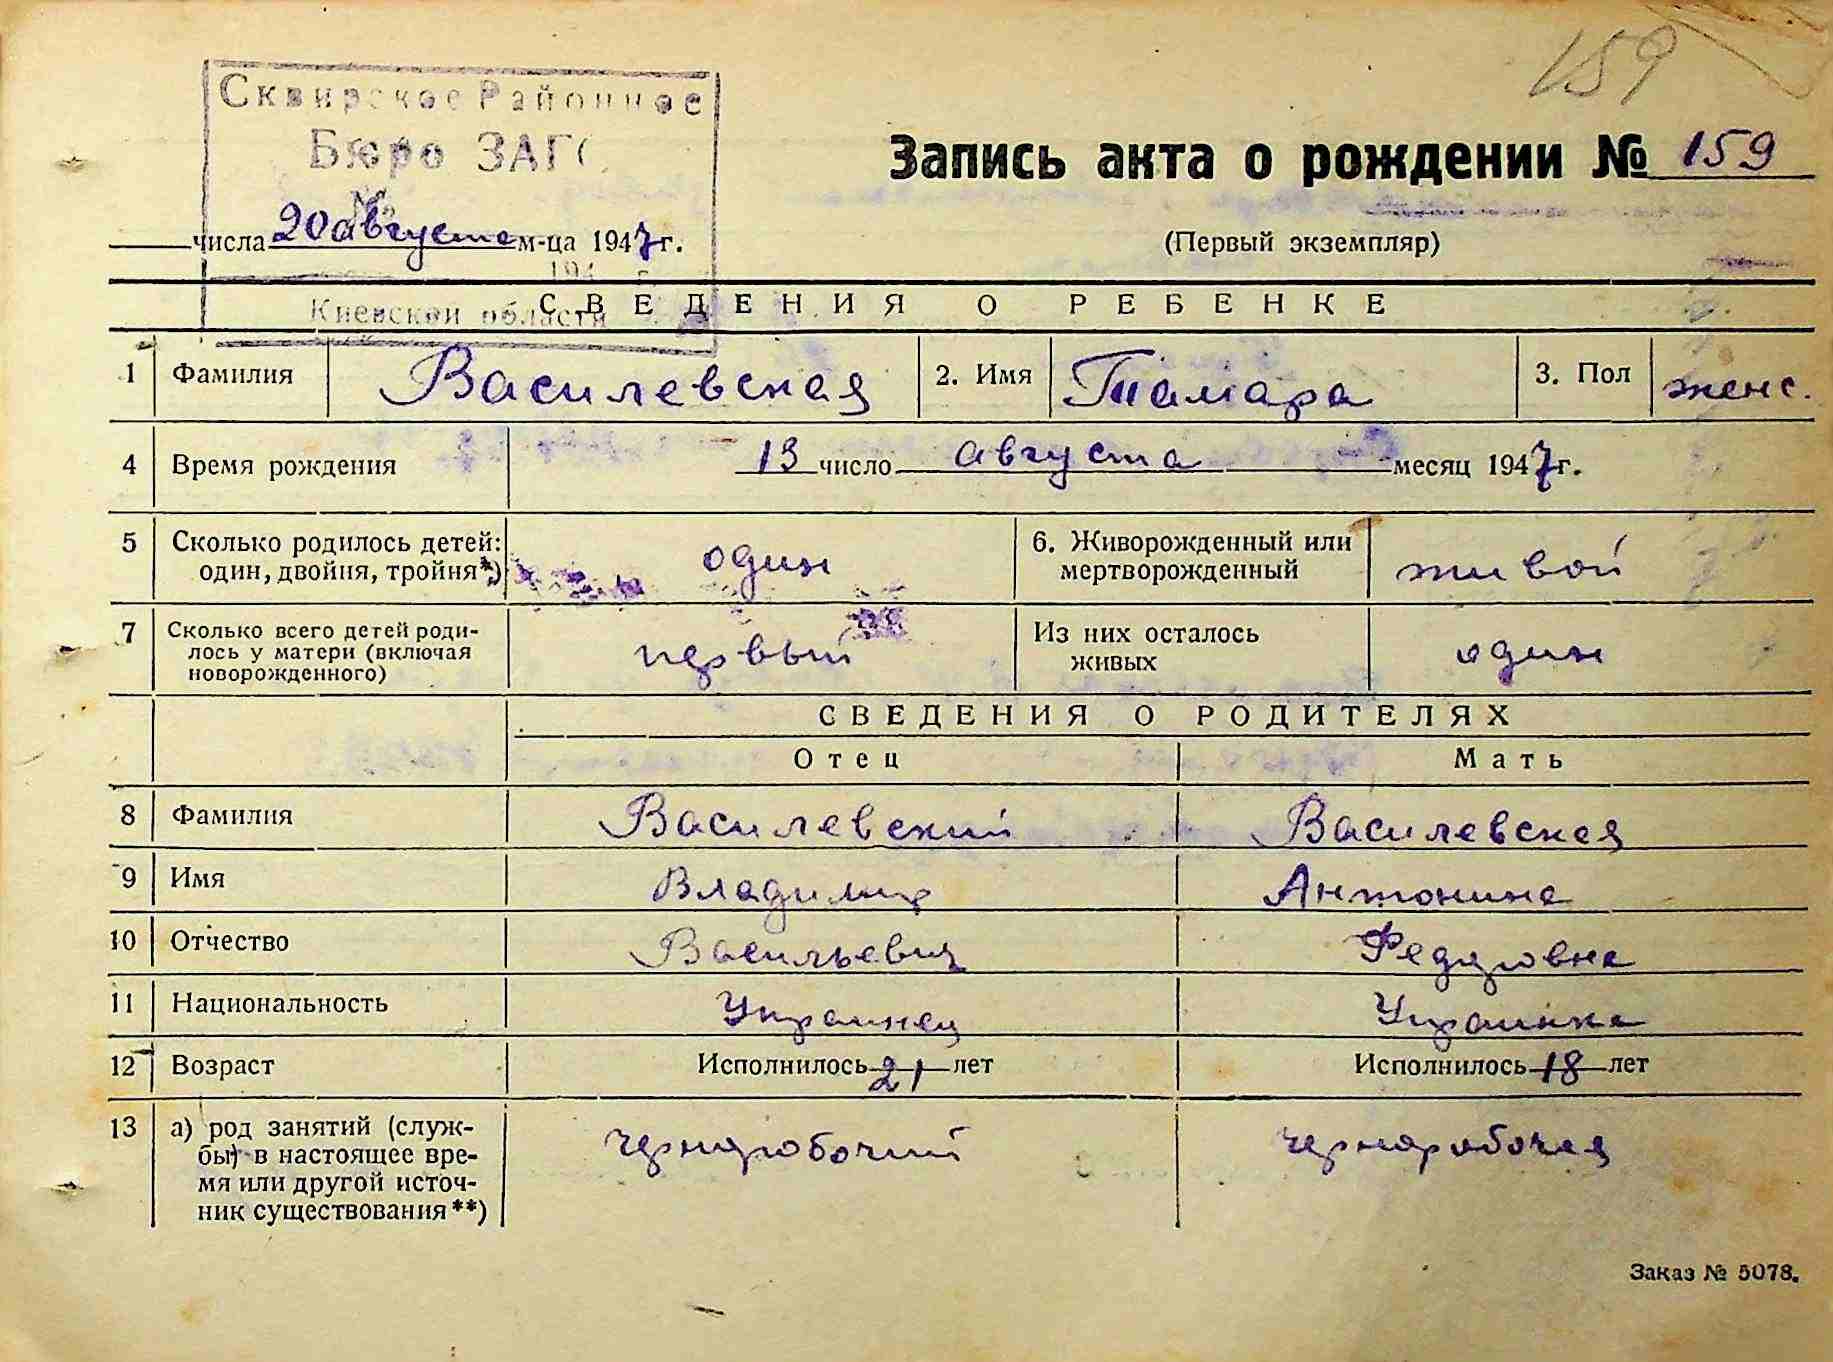 159
Сквирское Районное
Бюро ЗАГС
№
Запись акта о рождении № 159
числа 20 августа м-ца 1947 г.
(Первый экземпляр)
194 г.
Киевской области
СВЕДЕНИЯ О РЕБЕНКЕ
1 Фамилия Василевская 2. Имя Тамара 3. Пол женс.
4 Время рождения 13 число августа месяц 1947 г.
5 Сколько родилось детей: один 6. Живорожденный или живой
один, двойня, тройня*) мертворожденный
7 Сколько всего детей роди- первый Из них осталось один
лось у матери (включая живых
новорожденного)
СВЕДЕНИЯ О РОДИТЕЛЯХ
Отец Мать
8 Фамилия Василевский Василевская
9 Имя Владимир Антонина
10 Отчество Васильевич Федоровна
11 Национальность Украинец Украинка
12 Возраст Исполнилось 21 лет Исполнилось 18 лет
13 а) род занятий (служ- чернорабочий чернорабочая
бы) в настоящее вре-
мя или другой источ-
ник существования**)
Заказ № 5078.